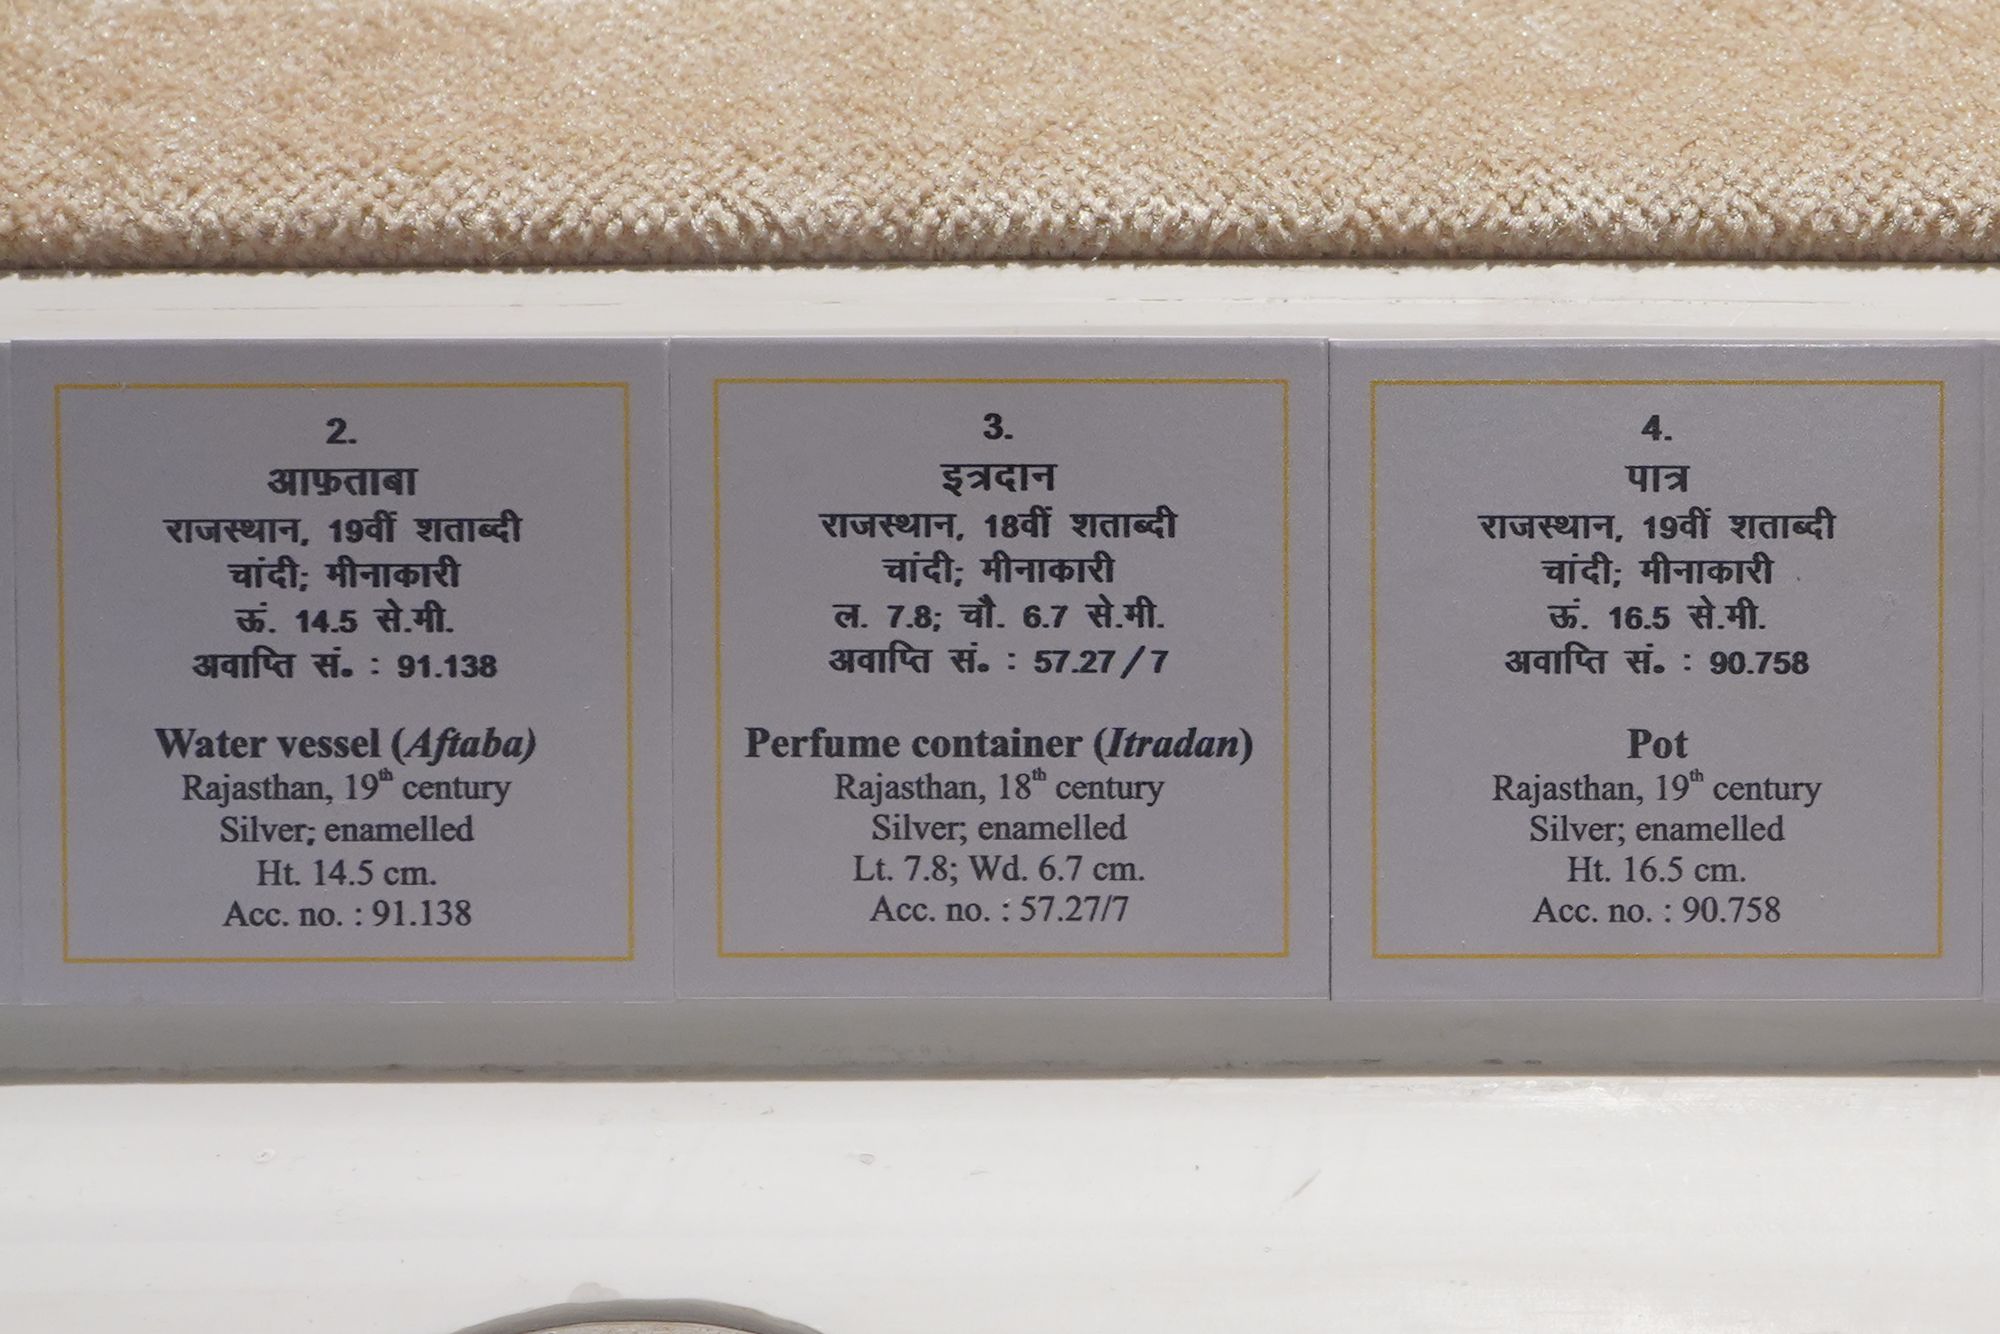 2.
आफ़ताबा
राजस्थान, 19वीं शताब्दी
चांदी; मीनाकारी
ऊं. 14.5 से.मी.
अवाप्ति सं. : 91.138
Water vessel (Aftaba)
Rajasthan, 19th century
Silver; enamelled
Ht. 14.5 cm.
Acc. no. : 91.138
3.
इत्रदान
राजस्थान, 18वीं शताब्दी
चांदी; मीनाकारी
ल. 7.8; चौ. 6.7 से.मी.
अवाप्ति सं. : 57.27/7
Perfume container (Itradan)
Rajasthan, 18th century
Silver; enamelled
Lt. 7.8; Wd. 6.7 cm.
Acc. no. : 57.27/7
4.
पात्र
राजस्थान, 19वीं शताब्दी
चांदी; मीनाकारी
ऊं. 16.5 से.मी.
अवाप्ति सं. : 90.758
Pot
Rajasthan, 19th century
Silver; enamelled
Ht. 16.5 cm.
Acc. no. : 90.758